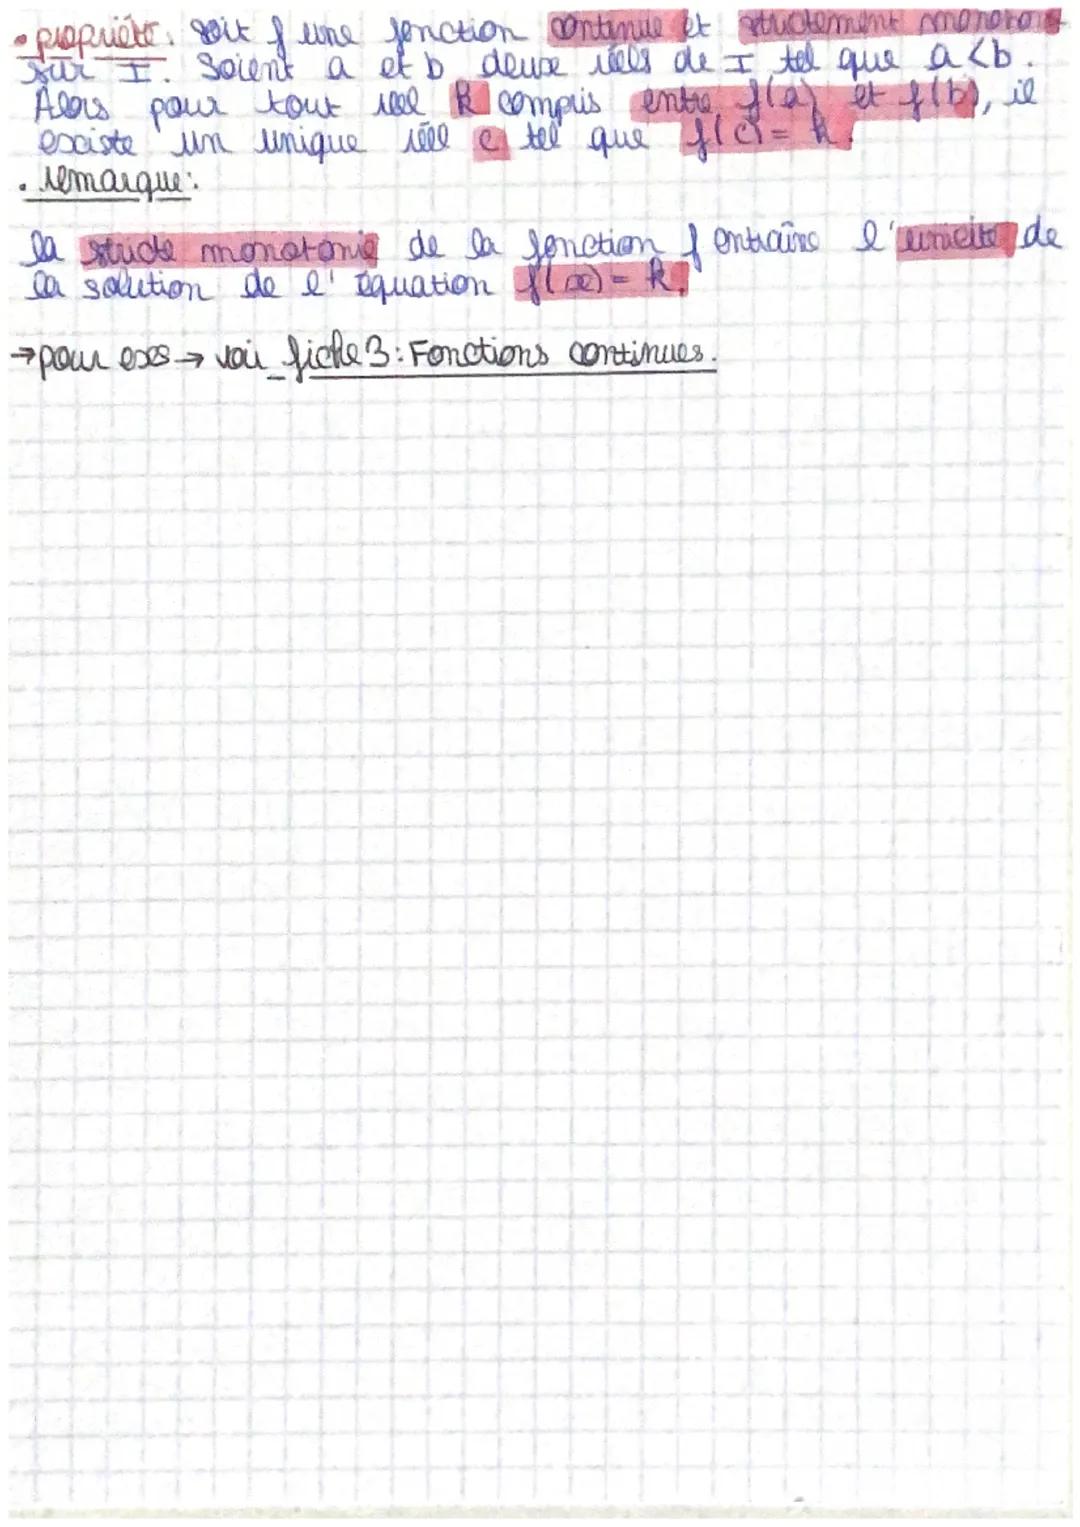 • propriété: Soit f une fonction continue et strictement monotone
sur I. Soient a et b deux réels de I tel que a<b.
Alors pour tout réel k compris entre f(a) et f(b), il
existe un unique réel c tel que f(c) = k.
• remarque:
la stricte monotonie de la fonction f entraîne l'unicité de
la solution de l'équation f(x) = k.
→ pour exos → voir fiche 3: Fonctions continues.